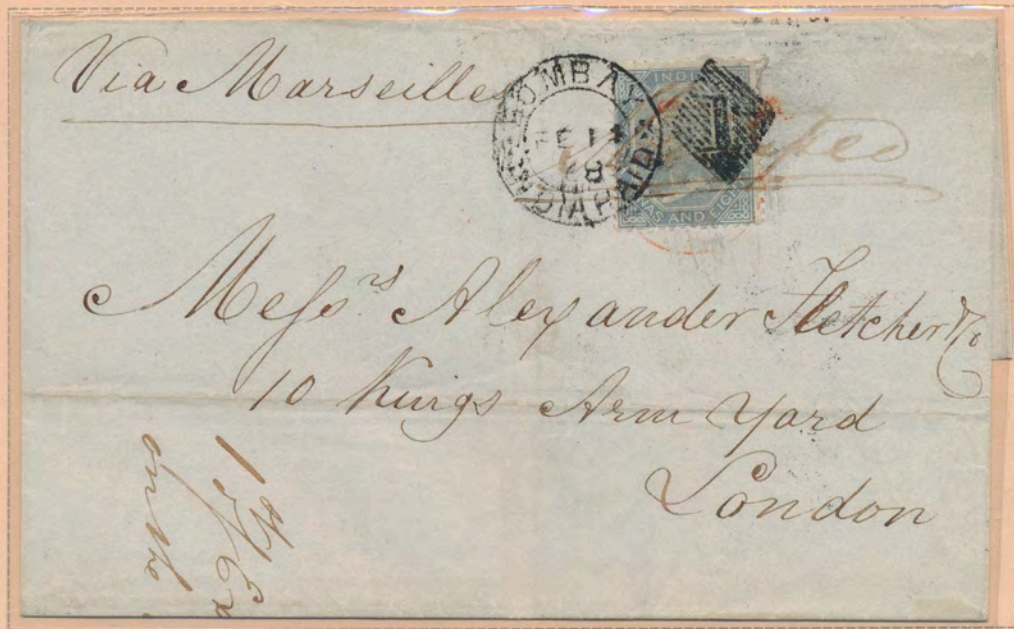 Via Marseilles
BOMBAY
FE 14
INDIA PAID
INDIA
1
NAS AND EIG
Messrs Alexander Fletcher & Co
10 Kings Arm Yard
London